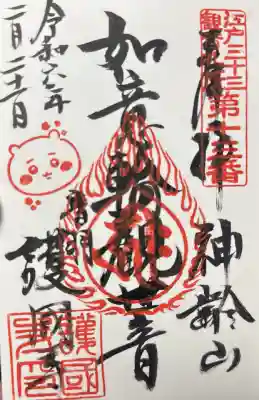 江戸三十三
観音
第十三番
奉拝
神齢山
如意輪観世音
護国寺
令和六年
二月二十二日